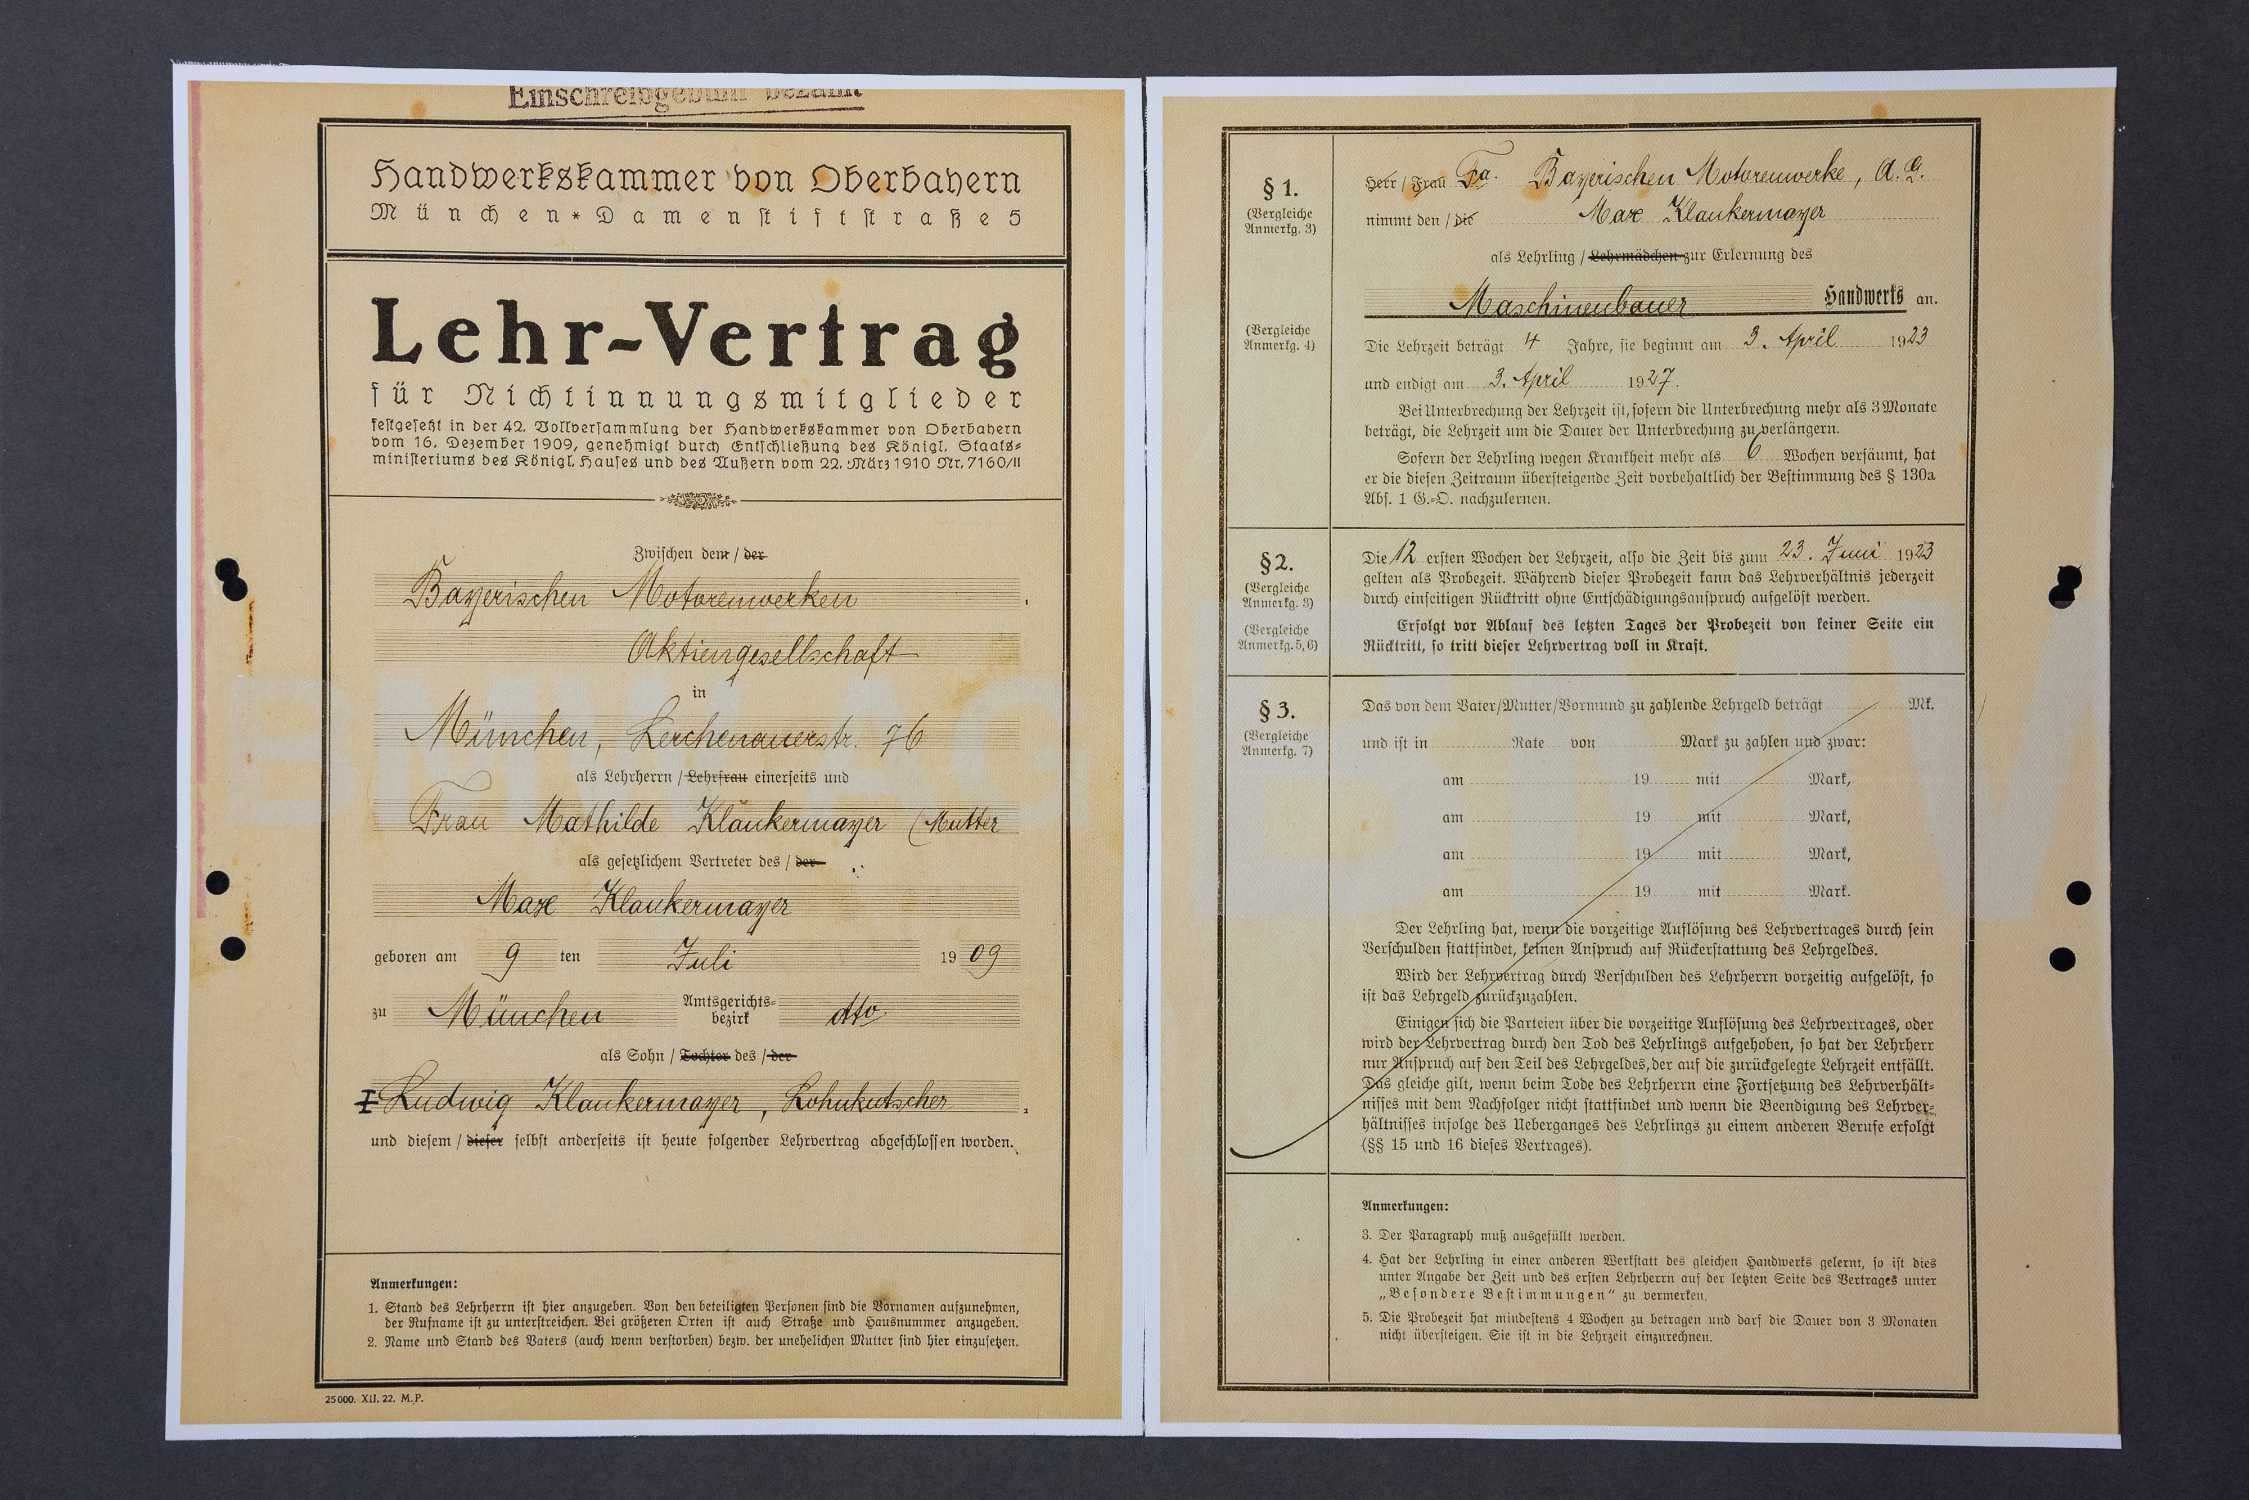 Einschreibgebühr bezahlt
Handwerkskammer von Oberbayern
München * Damenstiftstraße 5
Lehr-Vertrag
für Nichtinnungsmitglieder
festgesetzt in der 42. Vollversammlung der Handwerkskammer von Oberbayern
vom 16. Dezember 1909, genehmigt durch Entschließung des Königl. Staats-
ministeriums des Königl. Hauses und des Äußern vom 22. März 1910 Nr. 7160/II
Zwischen dem / der
Bayerischen Motorenwerken
Aktiengesellschaft
in
München, Lerchenauerstr. 76
als Lehrherrn / Lehrfrau einerseits und
Frau Mathilde Klankermayer (Mutter
als gesetzlichem Vertreter des / der
Max Klankermayer
geboren am 9 ten Juli 1909
zu München Amtsgerichts-
bezirk dto
als Sohn / Tochter des / der
Ludwig Klankermayer, Lohnkutscher
und diesem / dieser selbst anderseits ist heute folgender Lehrvertrag abgeschlossen worden.
Anmerkungen:
1. Stand des Lehrherrn ist hier anzugeben. Von den beteiligten Personen sind die Vornamen aufzunehmen,
der Rufname ist zu unterstreichen. Bei größeren Orten ist auch Straße und Hausnummer anzugeben.
2. Name und Stand des Vaters (auch wenn verstorben) bezw. der unehelichen Mutter sind hier einzusetzen.
25000. XII. 22. M.P.
BMW AG
§ 1.
(Vergleiche
Anmerkg. 3)
Herr / Frau Fa. Bayerischen Motorenwerke, A.G.
nimmt den / die Max Klankermayer
als Lehrling / Lehrmädchen zur Erlernung des
Maschinenbauer Handwerks an.
(Vergleiche
Anmerkg. 4)
Die Lehrzeit beträgt 4 Jahre, sie beginnt am 3. April 1923
und endigt am 3. April 1927.
Bei Unterbrechung der Lehrzeit ist, sofern die Unterbrechung mehr als 3 Monate
beträgt, die Lehrzeit um die Dauer der Unterbrechung zu verlängern.
Sofern der Lehrling wegen Krankheit mehr als 6 Wochen versäumt, hat
er die diesen Zeitraum übersteigende Zeit vorbehaltlich der Bestimmung des § 130a
Abs. 1 G.-O. nachzulernen.
§ 2.
(Vergleiche
Anmerkg. 3)
(Vergleiche
Anmerkg. 5, 6)
Die 12 ersten Wochen der Lehrzeit, also die Zeit bis zum 23. Juni 1923
gelten als Probezeit. Während dieser Probezeit kann das Lehrverhältnis jederzeit
durch einseitigen Rücktritt ohne Entschädigungsanspruch aufgelöst werden.
Erfolgt vor Ablauf des letzten Tages der Probezeit von keiner Seite ein
Rücktritt, so tritt dieser Lehrvertrag voll in Kraft.
§ 3.
(Vergleiche
Anmerkg. 7)
Das von dem Vater/Mutter/Vormund zu zahlende Lehrgeld beträgt Mk.
und ist in Rate von Mark zu zahlen und zwar:
am 19 mit Mark,
am 19 mit Mark,
am 19 mit Mark,
am 19 mit Mark.
Der Lehrling hat, wenn die vorzeitige Auflösung des Lehrvertrages durch sein
Verschulden stattfindet, keinen Anspruch auf Rückerstattung des Lehrgeldes.
Wird der Lehrvertrag durch Verschulden des Lehrherrn vorzeitig aufgelöst, so
ist das Lehrgeld zurückzuzahlen.
Einigen sich die Parteien über die vorzeitige Auflösung des Lehrvertrages, oder
wird der Lehrvertrag durch den Tod des Lehrlings aufgehoben, so hat der Lehrherr
nur Anspruch auf den Teil des Lehrgeldes, der auf die zurückgelegte Lehrzeit entfällt.
Das gleiche gilt, wenn beim Tode des Lehrherrn eine Fortsetzung des Lehrverhält-
nisses mit dem Nachfolger nicht stattfindet und wenn die Beendigung des Lehrver-
hältnisses infolge des Ueberganges des Lehrlings zu einem anderen Berufe erfolgt
(§§ 15 und 16 dieses Vertrages).
Anmerkungen:
3. Der Paragraph muß ausgefüllt werden.
4. Hat der Lehrling in einer anderen Werkstatt des gleichen Handwerks gelernt, so ist dies
unter Angabe der Zeit und des ersten Lehrherrn auf der letzten Seite des Vertrages unter
„Besondere Bestimmungen“ zu vermerken.
5. Die Probezeit hat mindestens 4 Wochen zu betragen und darf die Dauer von 3 Monaten
nicht übersteigen. Sie ist in die Lehrzeit einzurechnen.
BMW